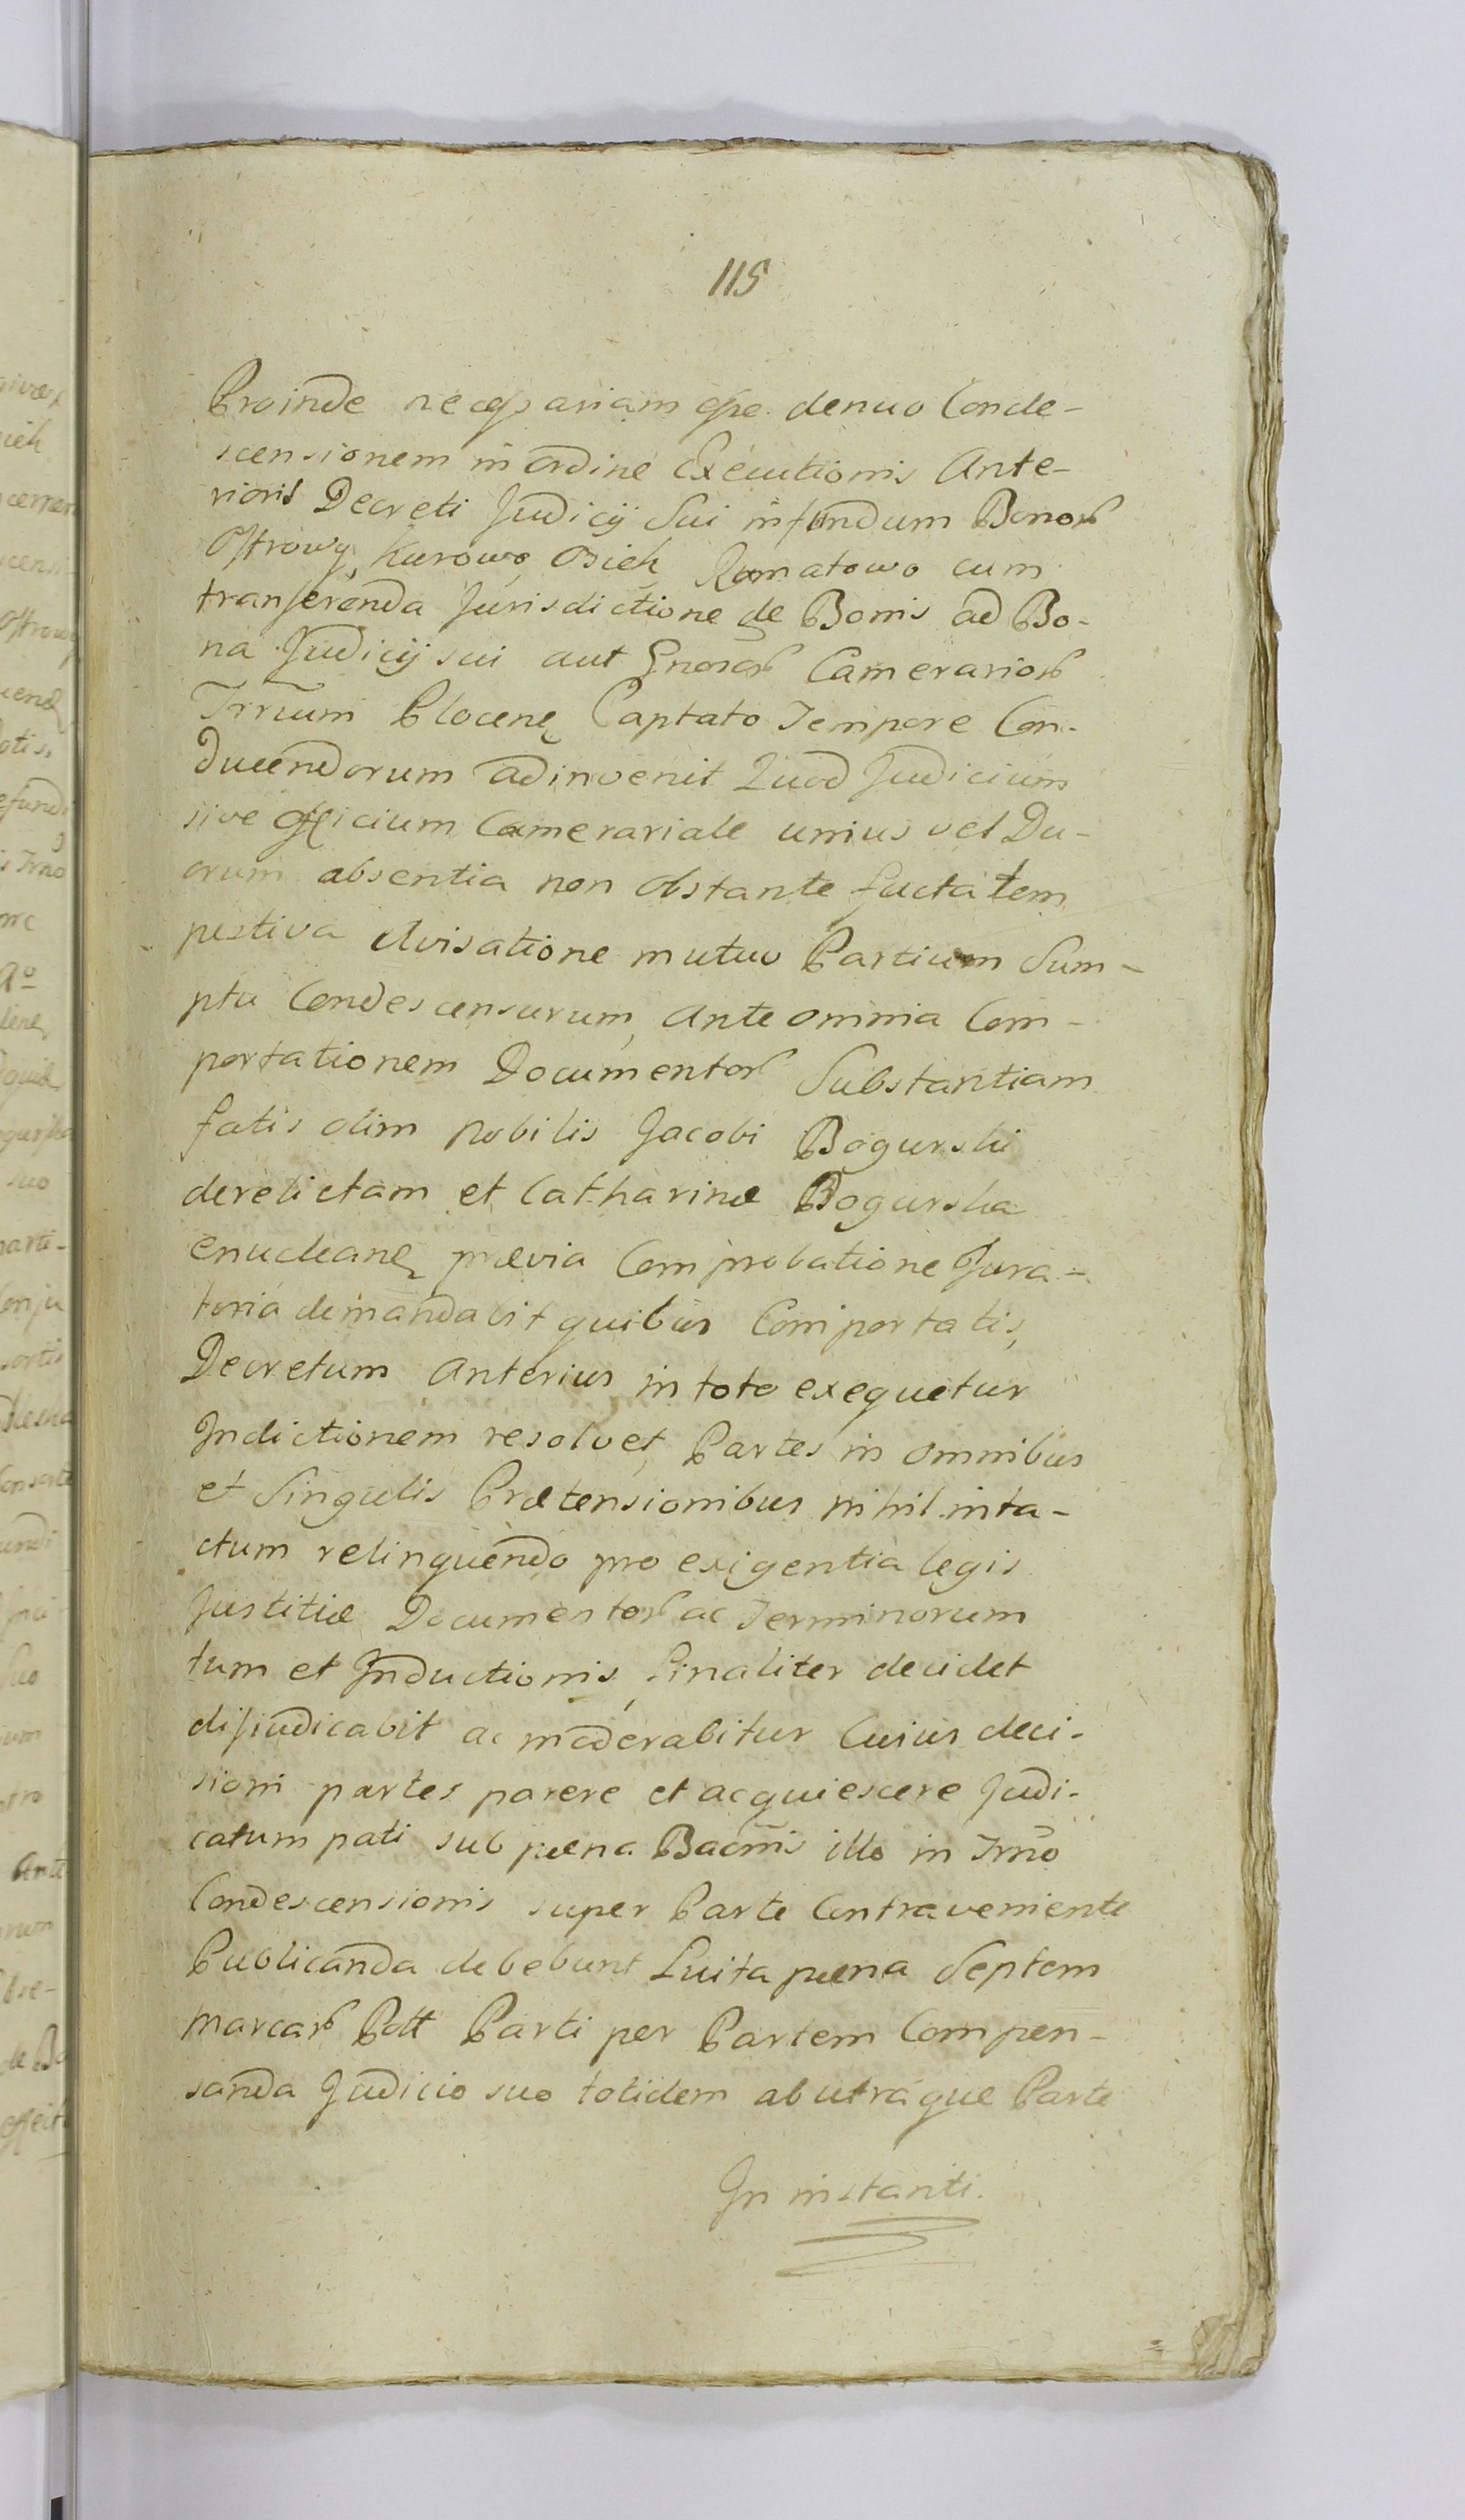 115
Proinde necessariam esse denuo Conde-
scensionem in ordine Executionis Ante-
rioris Decreti Judicij Sui in fundum Bonor
Ostrowy, Kurowo, Osiek, Romatowo cum
transferenda Jurisdictione de Bonis ad Bo-
na Judicij sui aut Gnosor Camerarior
Trrum Plocen Captato Tempore Con-
ducendorum adinvenit Quod Judicium
sive officium Camerariale unius vel Du-
orum absentia non obstante facta tem
pestiva Avisatione mutuo Partium Sum-
ptu Condescensurum, Ante omnia Com-
portationem Documentor Substantiam
fatis olim Nobilis Jacobi Bogurski
derelictam et Catharinæ Bogurska
enuclean prævia Comprobatione Jura-
toria demandabit quibus Comportatis,
Decretum Anterius in toto exequetur
Indictionem resolvet, Partes in omnibus
et Singulis Prætensionibus nihil inta-
ctum relinquendo pro exigentia legis
Justitiæ Documentor ac Terminorum
tum et Inductionis, finaliter decidet
disiudicabit ac moderabitur Cuius deci-
sioni partes parere et acquiescere Judi-
catum pati sub pæna Bacnnis illo in Trno
Condescensionis super Parte Contraveniente
Publicanda debebunt Luita pæna Septem
marcar Poll Parti per Partem Compen-
sanda Judicio suo totidem ab utraque Parte
In instanti.